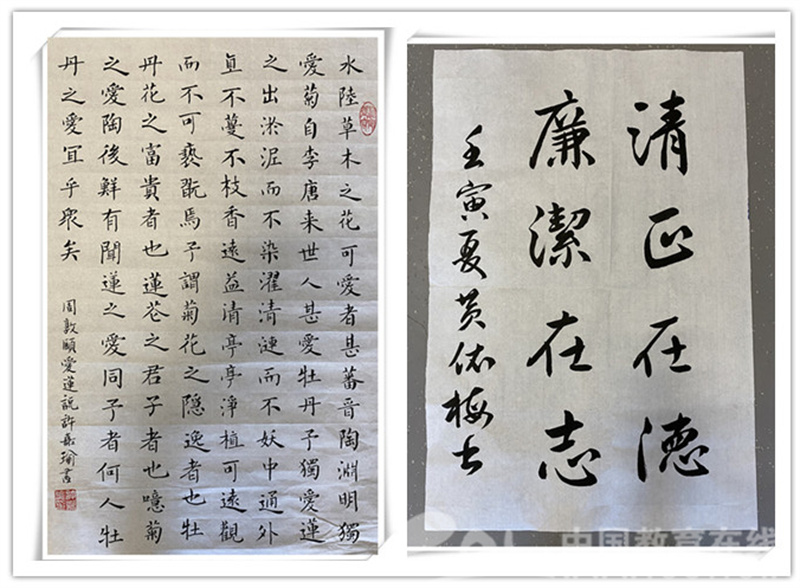 水陸草木之花可愛者甚蕃晋陶淵明獨
愛菊自李唐来世人甚愛牡丹予獨愛蓮
之出淤泥而不染濯清漣而不妖中通外
直不蔓不枝香遠益清亭亭淨植可遠觀
而不可褻翫焉予謂菊花之隱逸者也牡
丹花之富貴者也蓮花之君子者也噫菊
之愛陶後鮮有聞蓮之愛同予者何人牡
丹之愛宜乎衆矣
周敦頤愛蓮説許瑜書
清正在德
廉潔在志
壬寅夏黄依梅書
中国教育在线